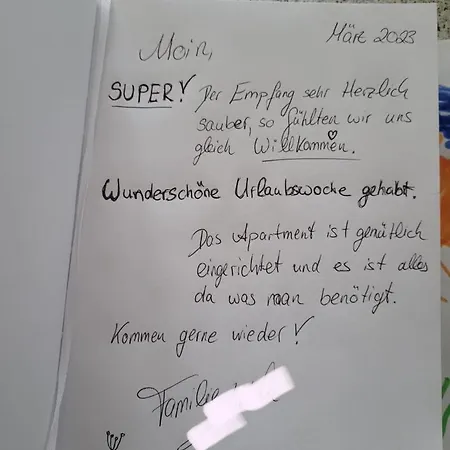 Moin,
März 2023
SUPER! Der Empfang sehr Herzlich
sauber, so fühlten wir uns
gleich Willkommen.
Wunderschöne Urlaubswoche gehabt.
Das Apartment ist gemütlich
eingerichtet und es ist alles
da was man benötigt.
Kommen gerne wieder!
Familie